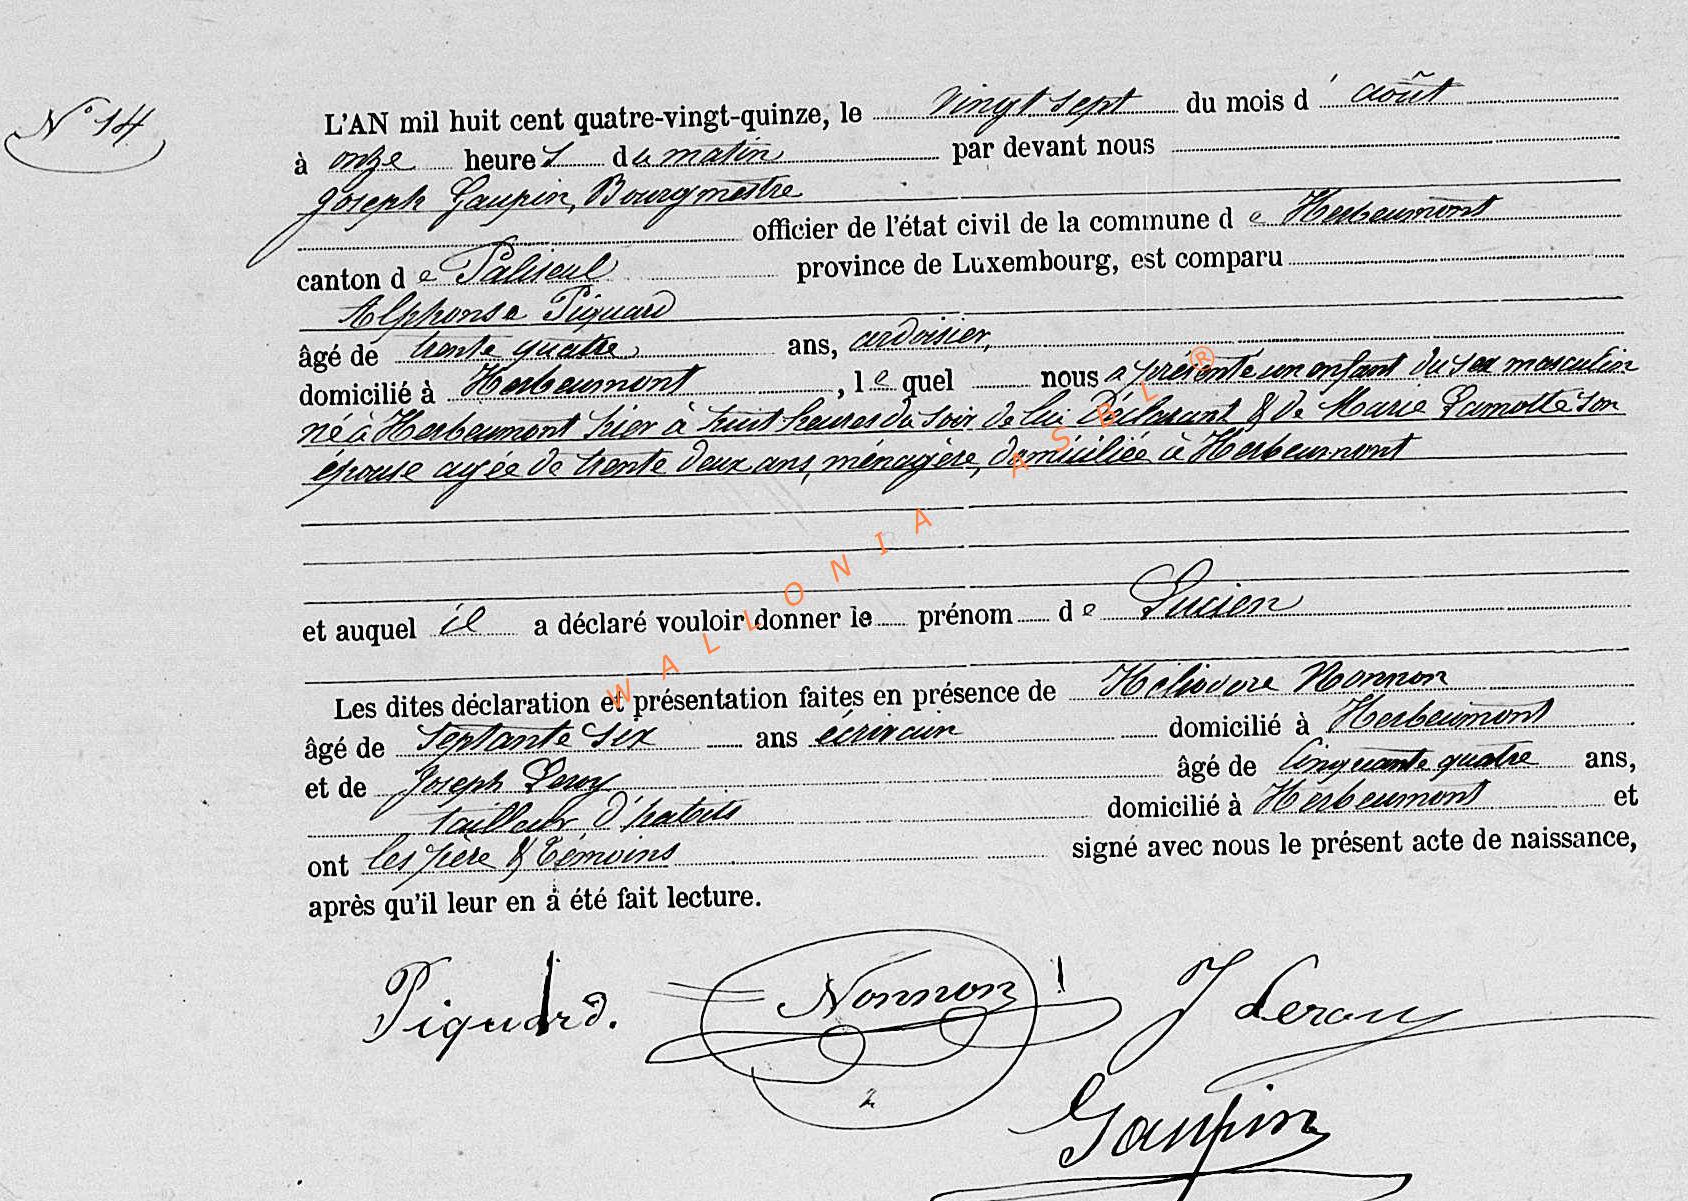 N° 14
L'AN mil huit cent quatre-vingt-quinze, le vingt sept du mois d'août
à onze heures du matin par devant nous
Joseph Gaupin, Bourgmestre
officier de l'état civil de la commune de Herbeumont
canton de Paliseul province de Luxembourg, est comparu
Alphonse Piquard
âgé de trente quatre ans, ardoisier,
domicilié à Herbeumont, lequel nous a présenté un enfant du sex masculin
né à Herbeumont hier à huit heures du soir de lui déclarant & de Marie Lamotte son
épouse agée de trente deux ans, ménagère, domiciliée à Herbeumont
et auquel il a déclaré vouloir donner le prénom de Lucien
Les dites déclaration et présentation faites en présence de Héliodore Nonnon
âgé de septante six ans écrivain domicilié à Herbeumont
et de Joseph Leroy âgé de cinquante quatre ans,
tailleur d'habits domicilié à Herbeumont et
ont les père & témoins signé avec nous le présent acte de naissance,
après qu'il leur en a été fait lecture.
Piquard. Nonnon J Leroy
Gaupin
WALLONIA ASBL ®